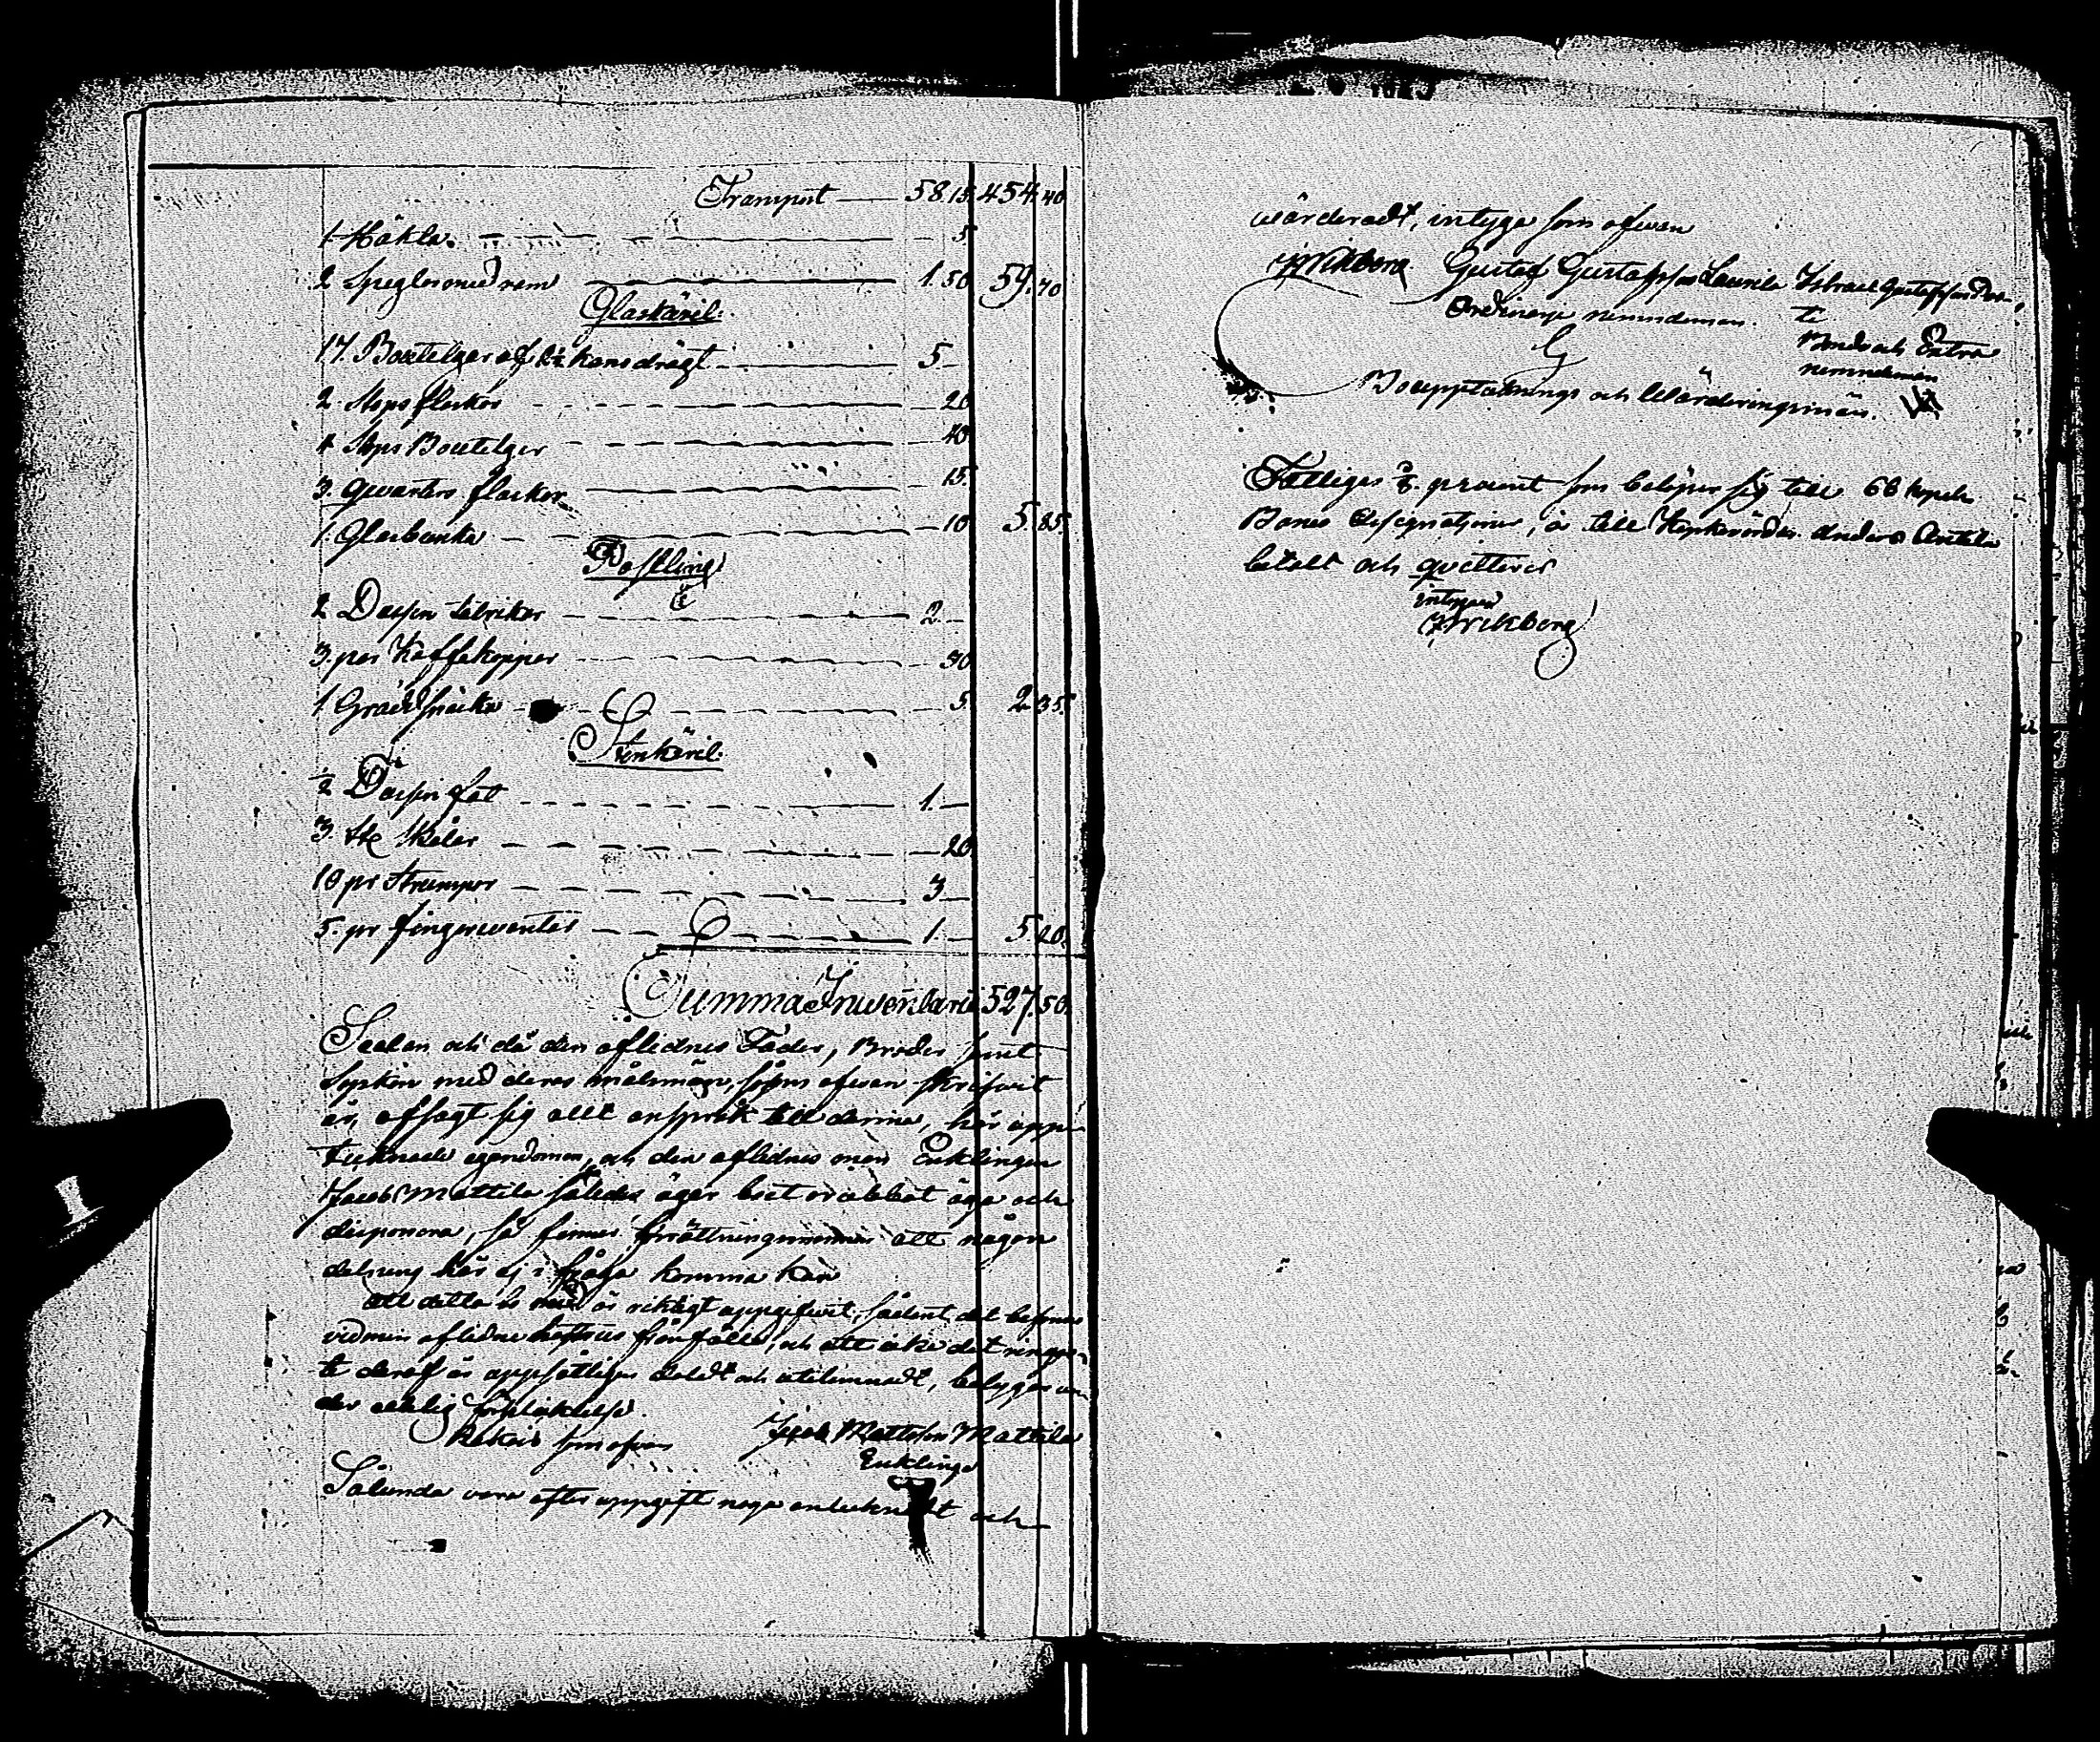 Transport — 58.15. 454.40
1. Häkla — 5
2 Speglor med ram — 1.50 59.70
Glaskäril.
17. Boutelger af kansdrägt — 5.—
2. Stops flaskor — 20
4 Stops Boutelger — 40.
3. qvarters flaskor — 15.
1. Glasbunke — 10 5.85.
Postlin
2 Dussin talrikar — 2.—
3. par Kaffekoppar — 30
1 Gräddsnäcka — 5 2.35.
Stenkäril.
½ Dussin fat — 1.—
3. st Skålar — 20
10 pr Strumpor — 3.—
5. pr fingervantar — 1.— 5.20.
Summa Inventarii 527.50.
Sedan och då den aflidnes Fader, Broder samt
Syskon med deras målsmän, som ofvan skrifvit
är, afsagt sig allt anspråk till denna, här upp-
tecknade egendomen, och den aflidnes man Enklingen
Jacob Mattila således äger boet orubbat äga och
disponera, så finner förrättningsmännen att någon
delning här ej i fråga komma kan
Att detta är riktigt uppgifvit, sådant det befanns
vid min aflidne hustrus frånfälle, och att icke det ringas-
te deraf är uppsåtligen doldt och utelemnadt, betygas un-
der edelig förpliktelse.
som ofvan Jacob Mattsson Mattila
Enkling
Sålunda vara efter uppgift noga antecknadt och
värderadt, intyga som ofwan
Wikberg Gustaf Gustafsson Laurila Israel Gustafsson
Ordinarje nemndeman.
Bonde och Extra
nemndeman
Bouppteknings och Wärderingsmän.
Fattiges procent som belöper sig till 66 kopek
Bones är till Kyrkovärden Anders Antila
betalt och qvitteras
intygar
Wikberg